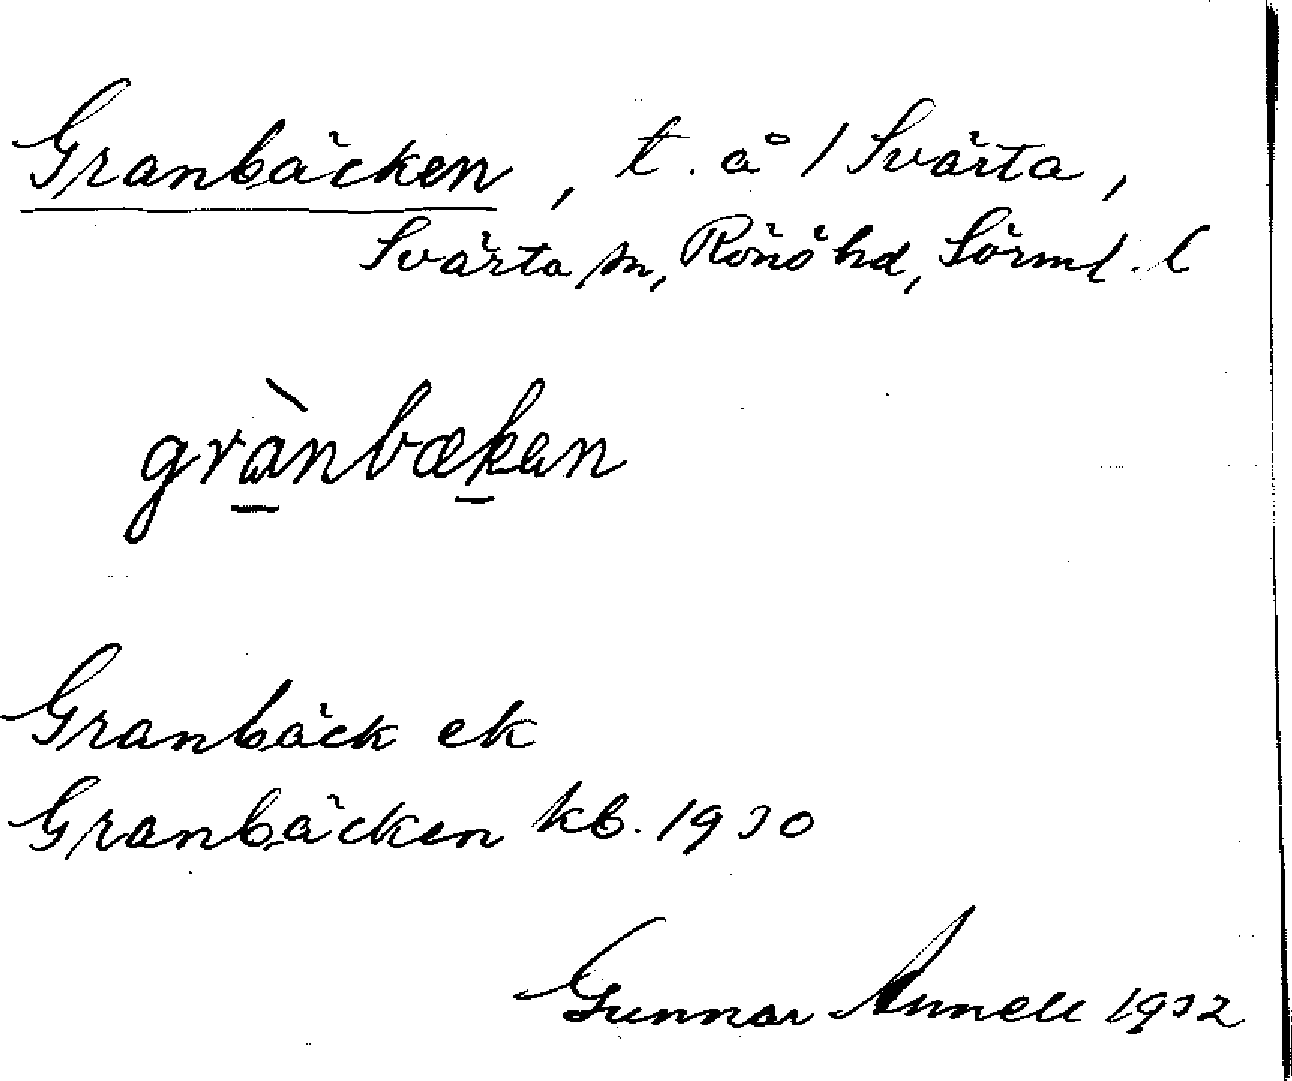 Granbäcken, t. å 1 Svärta,
Svärta sn, Rönö hd, Sörml. l
grànbækan
Granbäck ek
Granbäcken kb. 1930
Gunnar Annell 1932